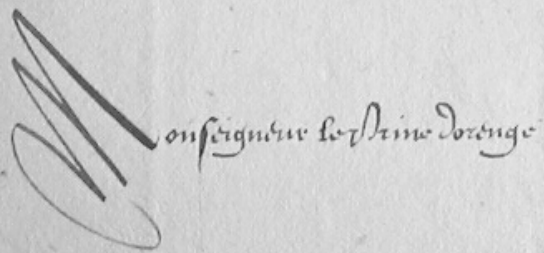 Monseigneur le prince dorenge